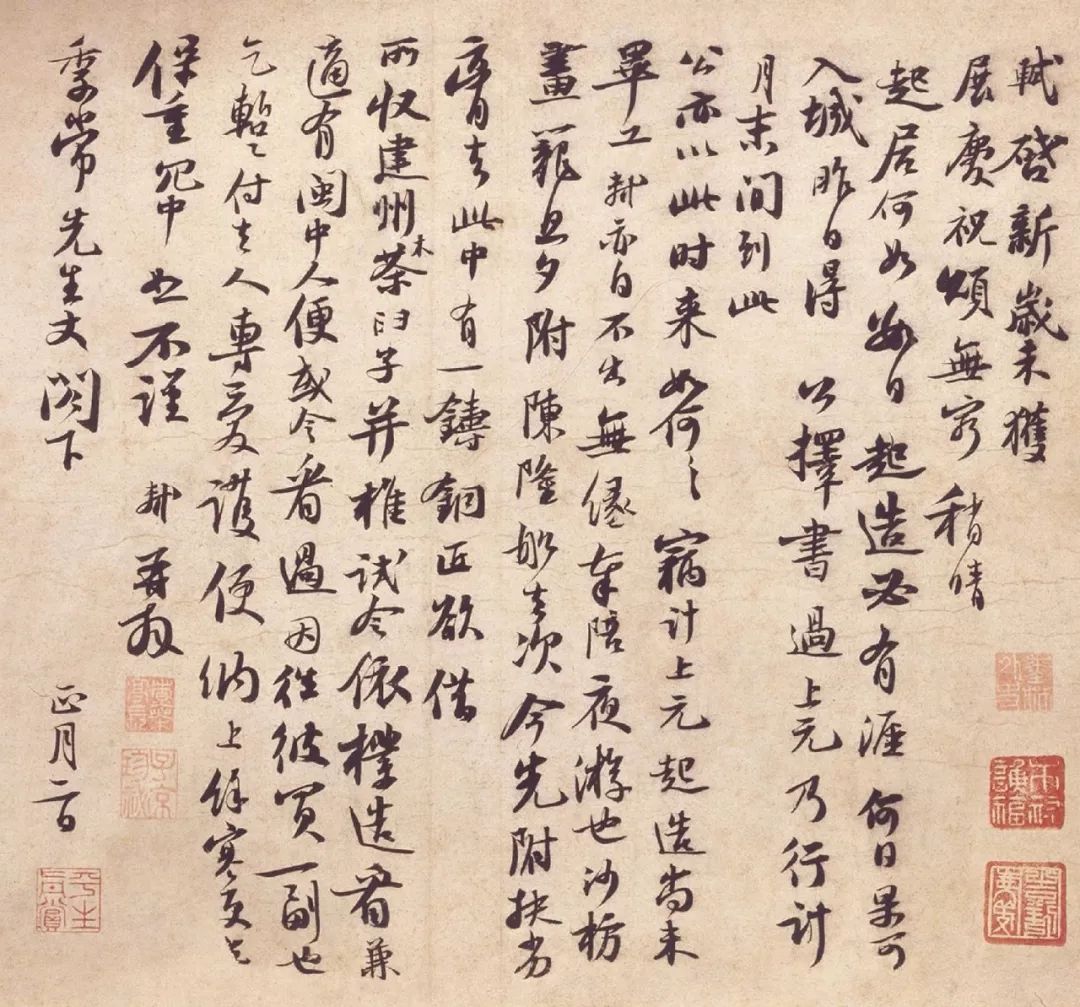 軾啓新歲未獲
展慶祝頌無窮稍晴
起居何如數日起造必有涯何日果可
入城昨日得公擇書過上元乃行計
月末間到此
公亦以此時來如何々竊計上元起造尚未
畢工軾亦自不出無緣奉陪夜游也沙枋
畫籠旦夕附陳隆船去次今先附扶劣
膏去此中有一鑄銅匠欲借
所收建州木茶臼子并椎試令依樣造看兼
適有閩中人便或令看過因往彼買一副也
乞暫付去人專愛護便納上餘寒更乞
保重冗中恕不謹軾再拜
季常先生丈閣下
正月二日
平生真賞